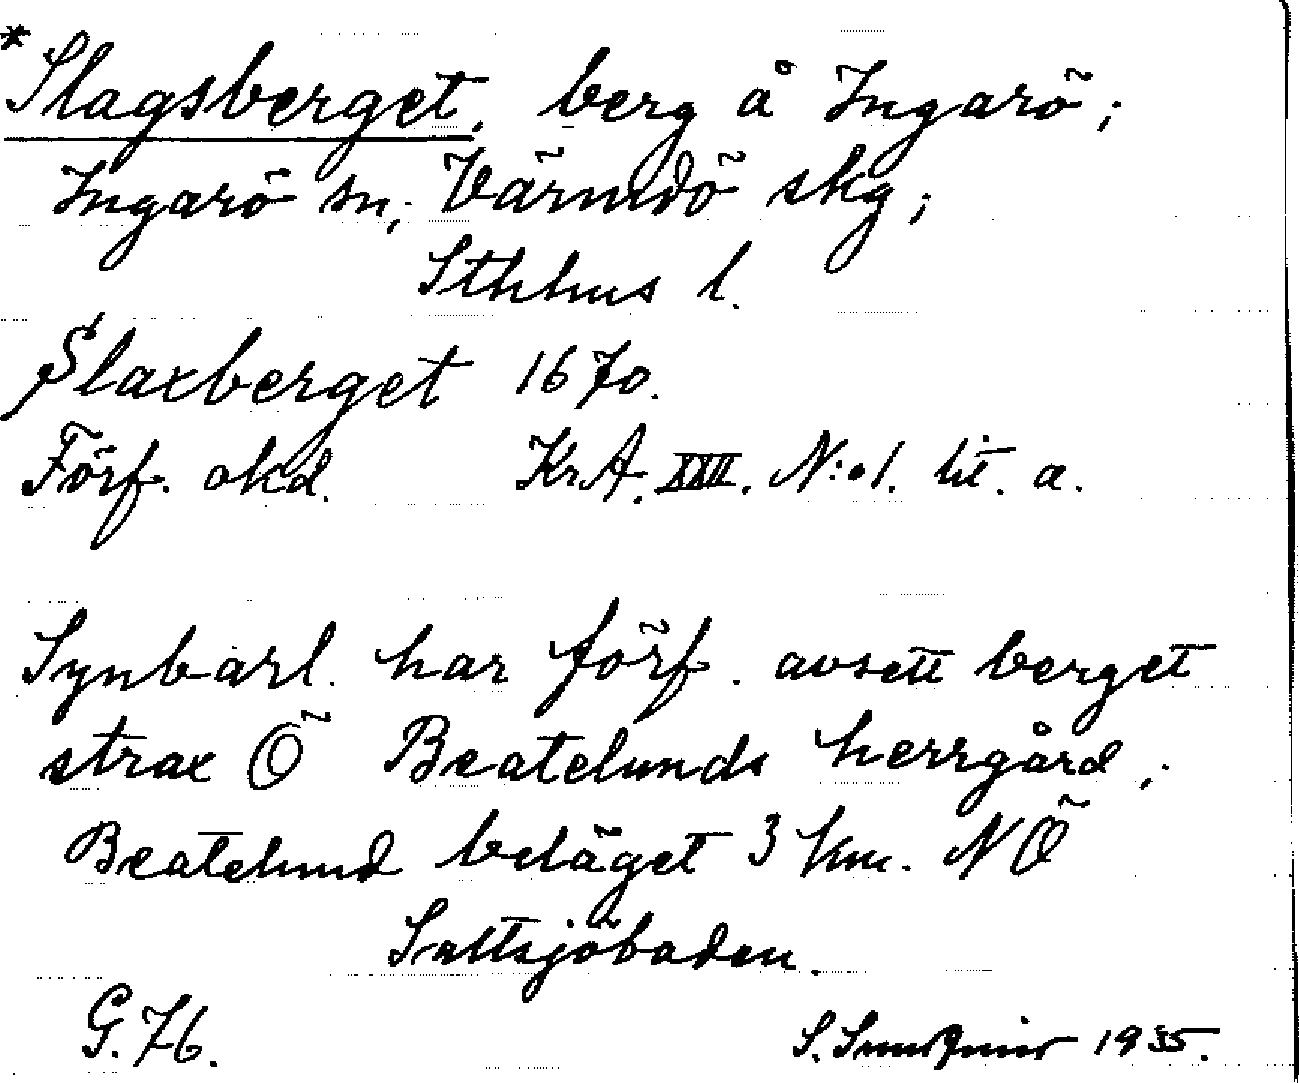 *Slagsberget, berg å Ingarö;
Ingarö sn; Värmdö skg;
Sthlms l.
Slaxberget 1670.
Förf. okd. Kr.A. XXII. N:o 1. lit. a.
Synbarl. har förf. avsett berget
strax Ö Beatelunds herrgård;
Beatelund beläget 3 km. NÖ
Saltsjöbaden.
G. 76. S. 1935.